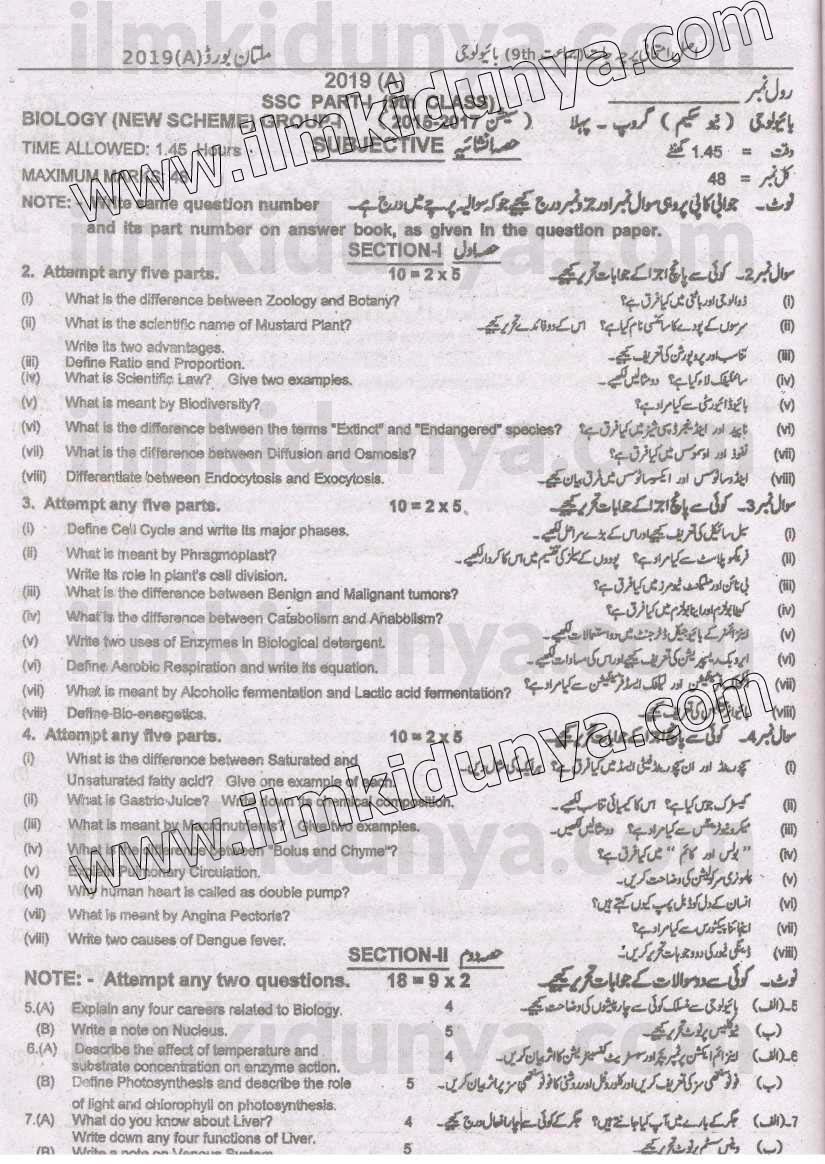 ملتان بورڈ 2019(A) (جماعت 9th) بائیولوجی
2019 (A)
SSC PART-I (9th CLASS) رول نمبر
BIOLOGY (NEW SCHEME) GROUP-I (سیشن 2015-2017) بائیولوجی (نیو سکیم) گروپ - پہلا
TIME ALLOWED: 1.45 Hours SUBJECTIVE حصہ انشائیہ وقت = 1.45 گھنٹے
MAXIMUM MARKS: 48 کل نمبر = 48
NOTE: - Write same question number نوٹ - جوابی کاپی پر وہی سوال نمبر اور جزو نمبر درج کیجیے جو کہ سوالیہ پرچے میں درج ہے -
and its part number on answer book, as given in the question paper.
SECTION-I حصہ اول
2. Attempt any five parts. 10 = 2 x 5 سوال نمبر 2- کوئی سے پانچ اجزا کے جوابات تحریر کیجیے -
(i) What is the difference between Zoology and Botany? زوالوجی اور باٹنی میں کیا فرق ہے؟ (i)
(ii) What is the scientific name of Mustard Plant? سرسوں کے پودے کا سائنسی نام کیا ہے؟ اس کے دو فائدے تحریر کیجیے - (ii)
Write its two advantages.
(iii) Define Ratio and Proportion. تناسب اور پروپورشن کی تعریف کیجیے - (iii)
(iv) What is Scientific Law? Give two examples. سائنٹیفک لاء کیا ہے؟ دو مثالیں لکھیے - (iv)
(v) What is meant by Biodiversity? بائیوڈائیورسٹی سے کیا مراد ہے؟ (v)
(vi) What is the difference between the terms "Extinct" and "Endangered" species? ناپید اور اینڈینجرڈ سپی شیز میں کیا فرق ہے؟ (vi)
(vii) What is the difference between Diffusion and Osmosis? نفوذ اور اوسموسس میں کیا فرق ہے؟ (vii)
(viii) Differentiate between Endocytosis and Exocytosis. اینڈوسائٹوسس اور ایکسوسائٹوسس میں فرق بیان کیجیے - (viii)
3. Attempt any five parts. 10 = 2 x 5 سوال نمبر 3- کوئی سے پانچ اجزا کے جوابات تحریر کیجیے -
(i) Define Cell Cycle and write its major phases. سیل سائیکل کی تعریف کیجیے اور اس کے بڑے مراحل لکھیے - (i)
(ii) What is meant by Phragmoplast? فریگموپلاسٹ سے کیا مراد ہے؟ پودوں کے سیلز کی تقسیم میں اس کا کردار لکھیے - (ii)
Write its role in plant's cell division.
(iii) What is the difference between Benign and Malignant tumors? بی نائن اور میلگننٹ ٹیومرز میں کیا فرق ہے؟ (iii)
(iv) What is the difference between Catabolism and Anabolism? کیٹابولزم اور اینابولزم میں کیا فرق ہے؟ (iv)
(v) Write two uses of Enzymes in Biological detergent. اینزائمز کے بائیولوجیکل ڈٹرجنٹ میں دو استعمالات لکھیے - (v)
(vi) Define Aerobic Respiration and write its equation. ایروبک ریسپریشن کی تعریف کیجیے اور اس کی مساوات لکھیے - (vi)
(vii) What is meant by Alcoholic fermentation and Lactic acid fermentation? اور لیکٹک ایسڈ فرمنٹیشن سے کیا مراد ہے؟ (vii)
(viii) Define Bio-energetics. کی تعریف کیجیے - (viii)
4. Attempt any five parts. 10 = 2 x 5 سوال نمبر 4- کوئی سے پانچ اجزا کے جوابات تحریر کیجیے -
(i) What is the difference between Saturated and سیچوریٹڈ اور ان سیچوریٹڈ فیٹی ایسڈ میں کیا فرق ہے؟ (i)
Unsaturated fatty acid? Give one example of each.
(ii) What is Gastric Juice? Write down its chemical composition. گیسٹرک جوس کیا ہے؟ اس کا کیمیائی تناسب لکھیے - (ii)
(iii) What is meant by Macronutrients? Give two examples. میکرونیوٹرینٹس سے کیا مراد ہے؟ دو مثالیں لکھیں - (iii)
(iv) What is the difference between "Bolus and Chyme"? "بولس اور کائم" میں کیا فرق ہے؟ (iv)
(v) Explain Pulmonary Circulation. پلمونری سرکولیشن کی وضاحت کریں - (v)
(vi) Why human heart is called as double pump? انسان کے دل کو ڈبل پمپ کیوں کہتے ہیں؟ (vi)
(vii) What is meant by Angina Pectoris? اینجائنا پیکٹورس سے کیا مراد ہے؟ (vii)
(viii) Write two causes of Dangue fever. ڈینگی فیور کی دو وجوہات تحریر کریں - (viii)
SECTION-II حصہ دوم
NOTE: - Attempt any two questions. 18 = 9 x 2 نوٹ - کوئی سے دو سوالات کے جوابات تحریر کیجیے -
5.(A) Explain any four careers related to Biology. 4 بائیولوجی سے منسلک کوئی سے چار پیشوں کی وضاحت کیجیے - 5-(الف)
(B) Write a note on Nucleus. 5 نیوکلیس پر نوٹ تحریر کیجیے - (ب)
6.(A) Describe the affect of temperature and 4 اینزائم ایکشن پر ٹمپریچر اور سبسٹریٹ کنسنٹریشن کا اثر بیان کریں - 6-(الف)
substrate concentration on enzyme action.
(B) Define Photosynthesis and describe the role 5 فوٹو سنتھی سز کی تعریف کریں اور کلوروفل اور روشنی کا فوٹو سنتھی سز پر اثر بیان کریں - (ب)
of light and chlorophyll on photosynthesis.
7.(A) What do you know about Liver? 4 جگر کے بارے میں آپ کیا جانتے ہیں؟ جگر کے کوئی سے چار افعال درج کیجیے - 7-(الف)
Write down any four functions of Liver.
(B) Write a note on Venous System 5 وینس سسٹم پر نوٹ تحریر کیجیے - (ب)
www.ilmkidunya.com
www.ilmkidunya.com
ilmkidunya.com
ilmkidunya.com
ilmkidunya.com
ilmkidunya.com
ilmkidunya.com